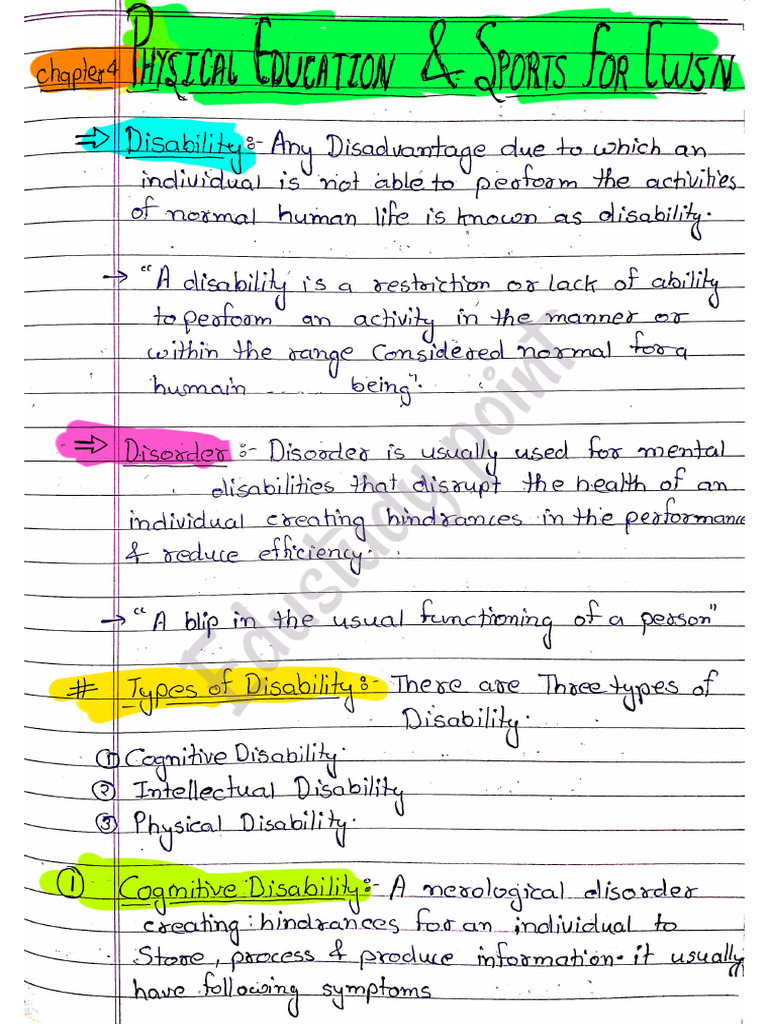 Chapter 4 PHYSICAL EDUCATION & SPORTS FOR CWSN
⇒ Disability:- Any Disadvantage due to which an
individual is not able to perform the activities
of normal human life is known as disability.
→ "A disability is a restriction or lack of ability
to perform an activity in the manner or
within the range considered normal for a
humain .... being".
⇒ Disorder :- Disorder is usually used for mental
disabilities that disrupt the health of an
individual creating hindrances in the performance
& reduce efficiency.
→ "A blip in the usual functioning of a person"
# Types of Disability:- There are Three types of
Disability.
① Cognitive Disability.
② Intellectual Disability
③ Physical Disability.
① Cogmitive Disability:- A nerological disorder
creating hindrances for an individual to
Store, process & produce information. it usually
have following symptoms
Edustudy point